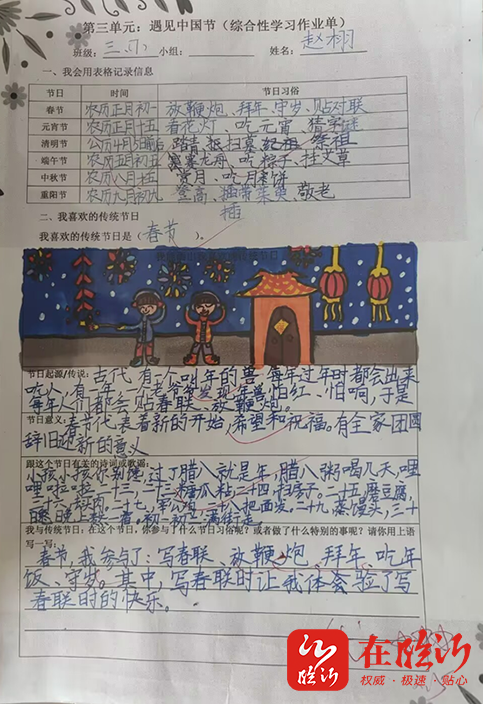 第三单元：遇见中国节（综合性学习作业单）
班级：三.(7) 小组： 姓名：赵栩
一、我会用表格记录信息
节日 时间 节日习俗
春节 农历正月初一 放鞭炮、拜年、守岁、贴对联
元宵节 农历正月十五 看花灯、吃元宵、猜字谜
清明节 公历4月5日前后 踏青 扫墓 祭祖
端午节 农历五月初五 赛龙舟、吃粽子、挂艾草
中秋节 农历八月十五 赏月、吃月饼
重阳节 农历九月初九 登高、插茱萸、敬老
插
二、我喜欢的传统节日
我喜欢的传统节日是（春节）。
节日起源/传说：古代有个叫年的兽,每年过年时都会出来
吃人,有一年,发现年兽怕红、怕响,于是
每年人们都会贴春联、放鞭炮。
节日意义：春节代表着新的开始,希望和祝福。有全家团圆
辞旧迎新的意义
跟这个节日有关的诗词或歌谣：
小孩小孩你别馋,过了腊八就是年,腊八粥喝几天,哩
哩啦啦二十三,二十三糖瓜粘,二十四扫房子。二十五磨豆腐,
二十九,蒸馒头,三十
晚上熬一宿。初一初二满街走。
我与传统节日：在这个节日，你参与了什么节日习俗呢？或者做了什么特别的事呢？请你用上语
写一写：
春节,我参与了：写春联、放鞭炮、拜年、吃年
饭、守岁。其中,写春联时让我体会验了写
春联时的快乐。
在临沂
临沂
权威·极速·贴心